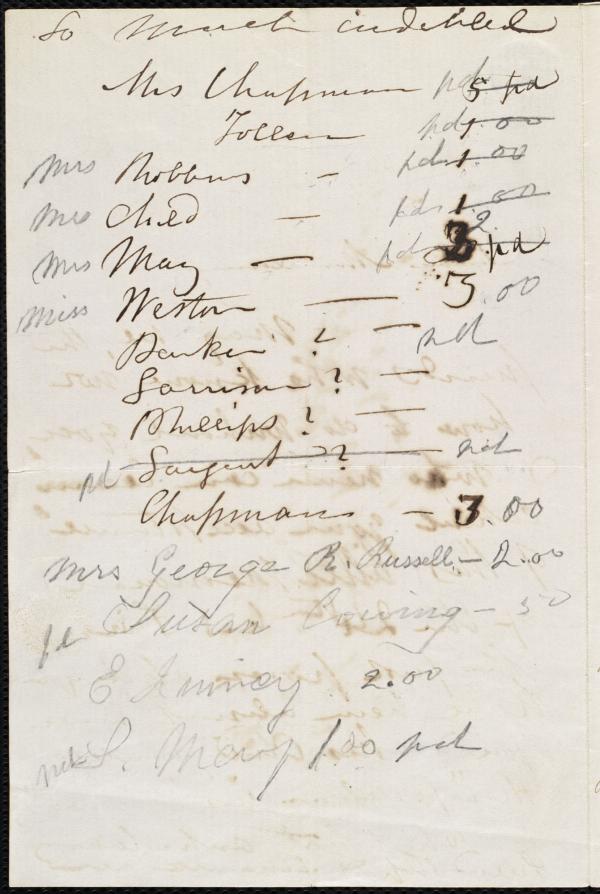 So much indebted
Mrs Chapman pd 5 pd
Follen pd 1.00
Mrs Robbins - pd 1.00
Mrs Child - pd 1.50
Mrs May - pd 2 pd
Miss Weston - 3.00
Parker ? - pd
Garrison ? -
Phillips ? -
pd Sargent ? - pd
Chapmans - 3.00
Mrs George R. Russell - 2.00
pd Susan Cowing - 50
E 2.00
pd S. May 1.00 pd